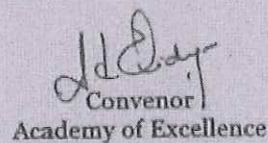 Convenor
Academy of Excellence